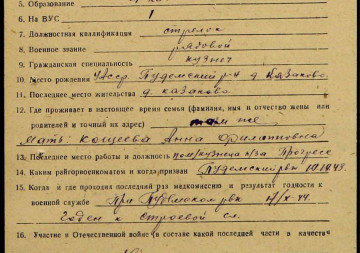 5. Образование
6. На ВУС 1
7. Должностная квалификация стрелок
8. Военное звание рядовой
9. Гражданская специальность кузнец
10. Место рождения УАССР Пудемский р-н д. Казаково
11. Последнее место жительства д. казаково
12. Где проживает в настоящее время семья (фамилия, имя и отчество жены или
родителей и точный их адрес) там же
Мать: Кощеева Анна Филатповна
13. Последнее место работы и должность пом/кузнеца к/за Прогресс
14. Каким райгорвоенкоматом и когда призван Пудемский рвк
15. Когда и где проходил последний раз медкомиссию и результат годности к
военной службе При Пудемском рвк
Годен к строевой сл.
16. Участие в Отечественной войне (в составе какой последней части и в качестве